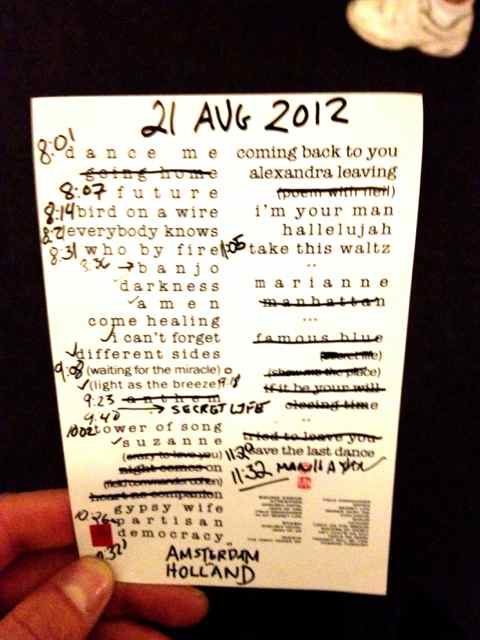 21 AUG 2012
8:01 dance me
going home
8:07 future
8:14 bird on a wire
8:21 everybody knows
8:31 who by fire
8:36 → banjo
darkness
amen
come healing
i can't forget
different sides
9:08 (waiting for the miracle)
(light as the breeze) 9:18
9:23 anthem
9:40 → SECRET LIFE
10:02 tower of song
suzanne
(crazy to love you)
night comes on
(field commander cohen)
heart no companion
gypsy wife
partisan
democracy
coming back to you
alexandra leaving
(poem with neil)
i'm your man
hallelujah
11:05 take this waltz
..
marianne
manhattan
...
famous blue
(secret life)
(show me the place)
if it be your will
closing time
..
tried to leave you
11:29 save the last dance
11:32 MANHATTAN
AMSTERDAM
HOLLAND